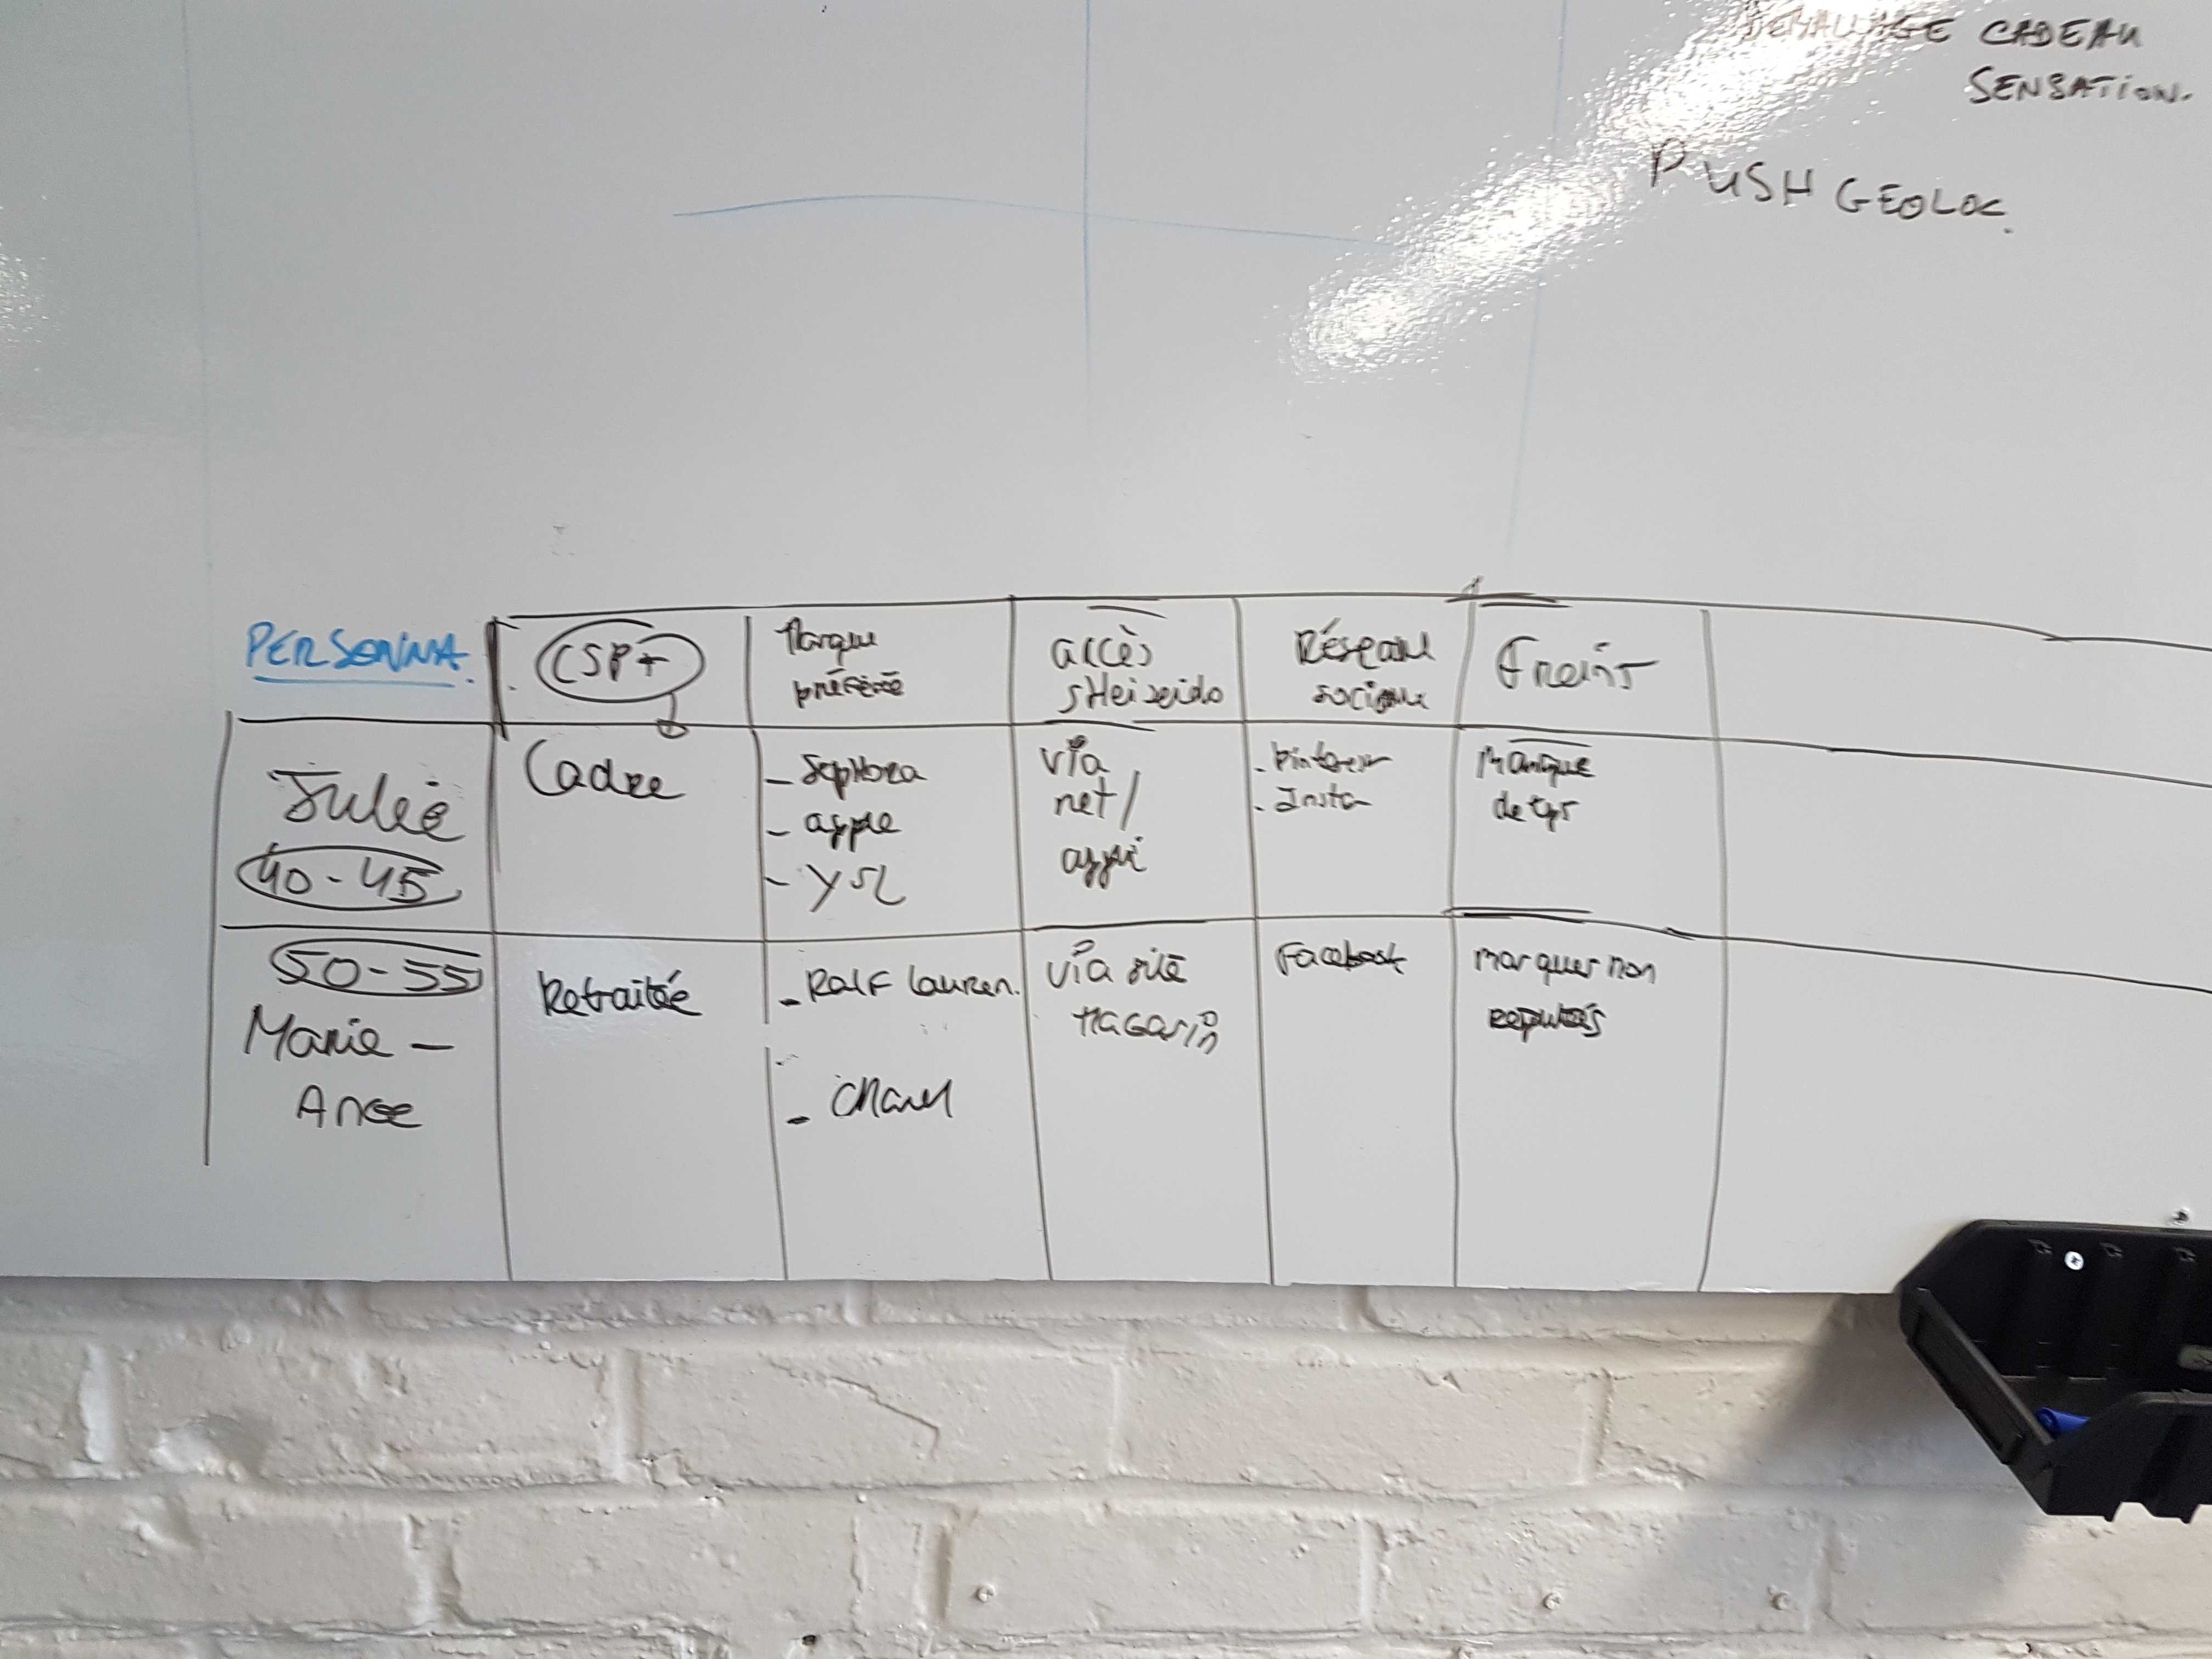 CADEAU
SENSATION.
PUSH GEOLOC.
PERSONNA.
CSP+
Marque
préférée
accès
sHeiseido
Réseaux
sociaux
Freins
Julie
40-45
Cadre
- Sephora
- apple
- YSL
via
net/
appli
- Pinterest
- Insta
Manque
de tps
50-55
Marie-
Ange
Retraitée
- Ralf Lauren.
- Chanel
via site
Magasin
Facebook
marques non
reputés